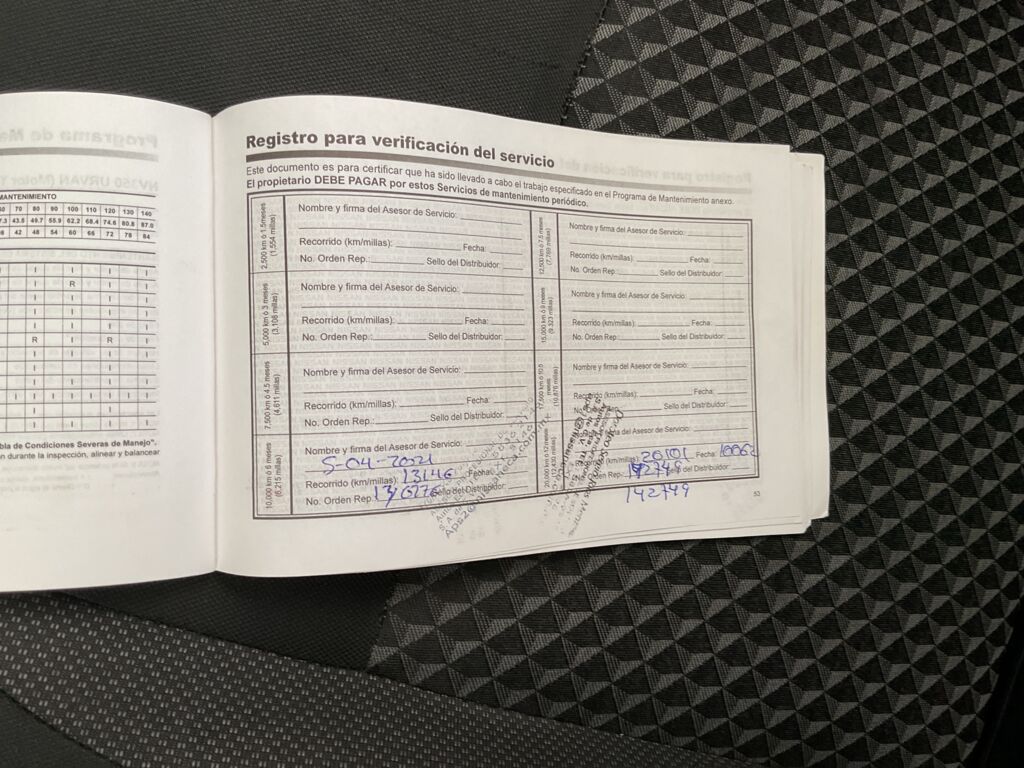 Programa de Ma
NV350 URVAN (Motor
MANTENIMIENTO
70 80 90 100 110 120 130 140
43.5 49.7 55.9 62.2 68.4 74.6 80.8 87.0
42 48 54 60 66 72 78 84
I I I I
I R I I
I I I I
I I I I
I I I I
R I R I
I I I I
I I I
bla de Condiciones Severas de Manejo".
n durante la inspección, alinear y balancear
Registro para verificación del servicio
Este documento es para certificar que ha sido llevado a cabo el trabajo especificado en el Programa de Mantenimiento anexo.
El propietario DEBE PAGAR por estos Servicios de mantenimiento periódico.
2,500 km ó 1.5 meses
(1,554 millas)
Nombre y firma del Asesor de Servicio:
Recorrido (km/millas): Fecha:
No. Orden Rep.: Sello del Distribuidor:
5,000 km ó 3 meses
(3,108 millas)
Nombre y firma del Asesor de Servicio:
Recorrido (km/millas): Fecha:
No. Orden Rep.: Sello del Distribuidor:
7,500 km ó 4.5 meses
(4,611 millas)
Nombre y firma del Asesor de Servicio:
Recorrido (km/millas): Fecha:
No. Orden Rep.: Sello del Distribuidor:
10,000 km ó 6 meses
(6,215 millas)
Nombre y firma del Asesor de Servicio:
5-04-2021
Recorrido (km/millas): 13146 Fecha:
No. Orden Rep. Sello del Distribuidor:
12,500 km ó 7.5 meses
(7,769 millas)
Nombre y firma del Asesor de Servicio:
Recorrido (km/millas): Fecha:
No. Orden Rep.: Sello del Distribuidor:
15,000 km ó 9 meses
(9,323 millas)
Nombre y firma del Asesor de Servicio:
Recorrido (km/millas): Fecha:
No. Orden Rep.: Sello del Distribuidor:
17,500 km ó 10.5 meses
(10,876 millas)
Nombre y firma del Asesor de Servicio:
Recorrido (km/millas): Fecha:
Sello del Distribuidor:
20,000 km ó 12 meses
(12,430 millas)
firma del Asesor de Servicio:
(km/millas): 20101 Fecha:
Orden Rep. 142749 del Distribuidor:
142749
53